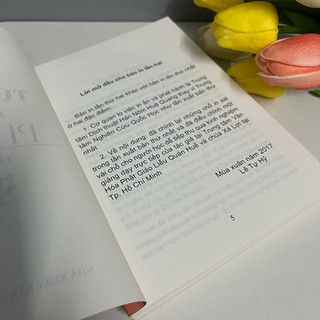 Lời mở đầu cho bản in lần hai
Bản in lần thứ hai khác với bản in lần thứ nhất
ở hai đặc điểm:
1. Cơ quan tổ chức in và phát hành là Trung
tâm Dịch thuật Hán Nôm Huệ Quang thay vì Trung
tâm Nghiên Cứu Quốc Học như lần xuất bản thứ
nhất.
2. Về nội dung: đã chỉnh lại những chỗ in sai
trong lần xuất bản thứ nhất và đã điều chỉnh một
vài chỗ cho người học dễ tiếp thu qua kinh nghiệm
giảng dạy trực tiếp của tác giả tại Trung tâm Văn
Hóa Phật Giáo Liễu Quán Huế và chùa Xá Lợi tại
Tp. Hồ Chí Minh
Mùa xuân năm 2017
Lê Tự Hỷ
5
NHÀ XUẤT BẢN